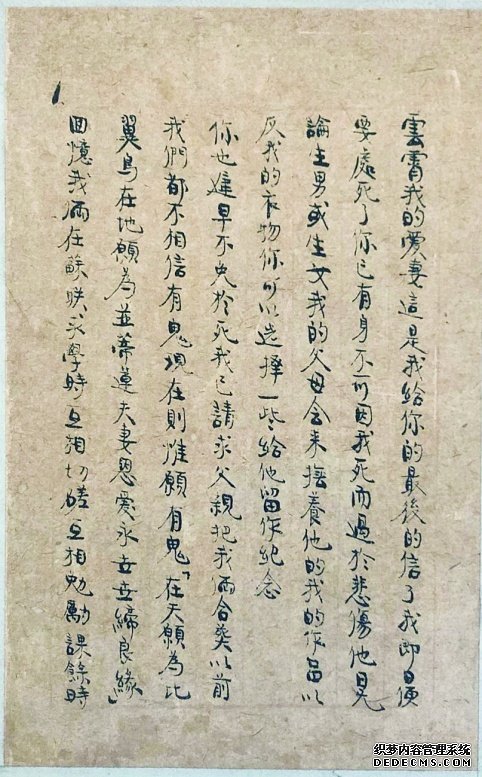 雲霄我的愛妻這是我給你的最後的信了我即日便
要處死了你已有身不可因我死而過於悲傷他日无
論生男或生女我的父母会来撫養他的我的作品以
及我的衣物你可以选擇一些给他留作紀念
你也遲早不免於死我已請求父親把我俩合葬以前
我們都不相信有鬼現在則惟願有鬼「在天願為比
翼鳥在地願為並蒂蓮夫妻恩爱永世世締良緣」
回憶我俩在蘇联求學時互相切磋互相勉勵課餘時
织梦内容管理系统
DEDECMS.COM